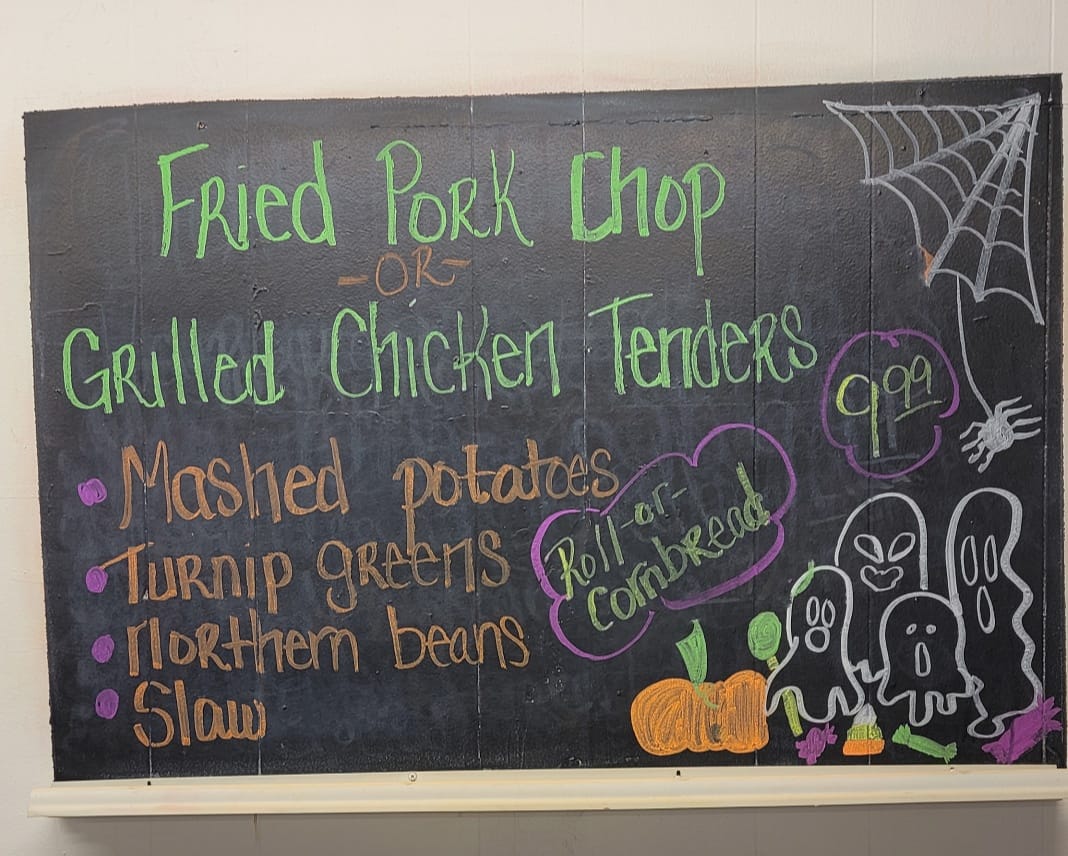 Fried Pork Chop
-OR-
Grilled Chicken Tenders
9.99
• Mashed potatoes
• Turnip greens
• Northern beans
• Slaw
Roll -or-
cornbread